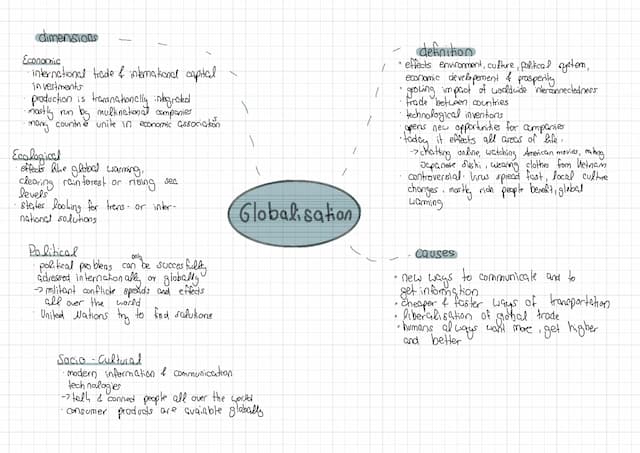 dimensions
Economic
· international trade & international capital
investments
· production is transnationally integrated
· mostly run by multinational companies
· many countrie unite in economic association
Ecological
effects like global warming,
clearing rainforest or rising sea
levels
· states looking for trans- or inter-
national solutions
Political
· political problems can only be succesfully
adressed internationally or globally
→ militant conflicts spreads and effects
all over the world
· United Nations try to find solutions
Socio-Cultural
· modern information & communication
technologies
→ talk & connect people all over the world
· consumer products are avaiable globally
Globalisation
definition
· effects environment, culture, political system,
economic developement & prosperity
· growing impact of worldwide interconnectedness
· trade between countries
· technological inventions
opens new opportunities for companies
· today it effects all areas of life.
→ chatting online, watching American movies, making
Japanese Sushi, wearing clothes from Vietnam
· controversial: Virus spread fast, local culture
changes, mostly rich people benefit, global
warming
causes
· new ways to communicate and to
get information
· cheaper & faster ways of transportation
· liberalisation of global trade
· humans always want more, get higher
and better